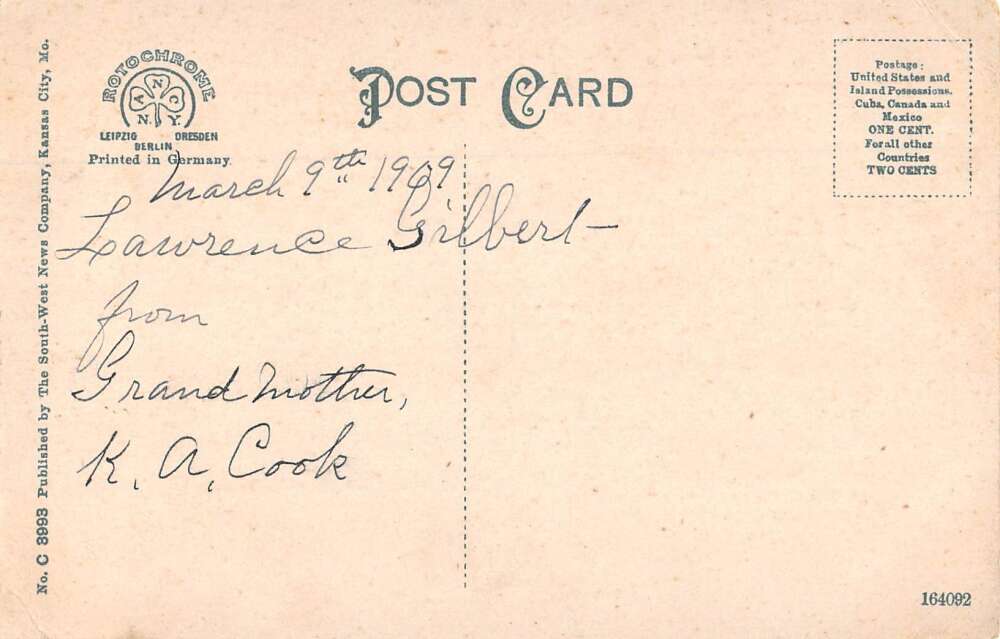 No. C 3993 Published by The South-West News Company, Kansas City, Mo.
ROTOCHROME
A N C
N. Y.
LEIPZIG DRESDEN
BERLIN
Printed in Germany
POST CARD
Postage:
United States and
Island Possessions.
Cuba, Canada and
Mexico
ONE CENT.
For all other
Countries
TWO CENTS
March 9th 1909
Lawrence Gilbert—
from
Grand Mother,
K. A. Cook
164092